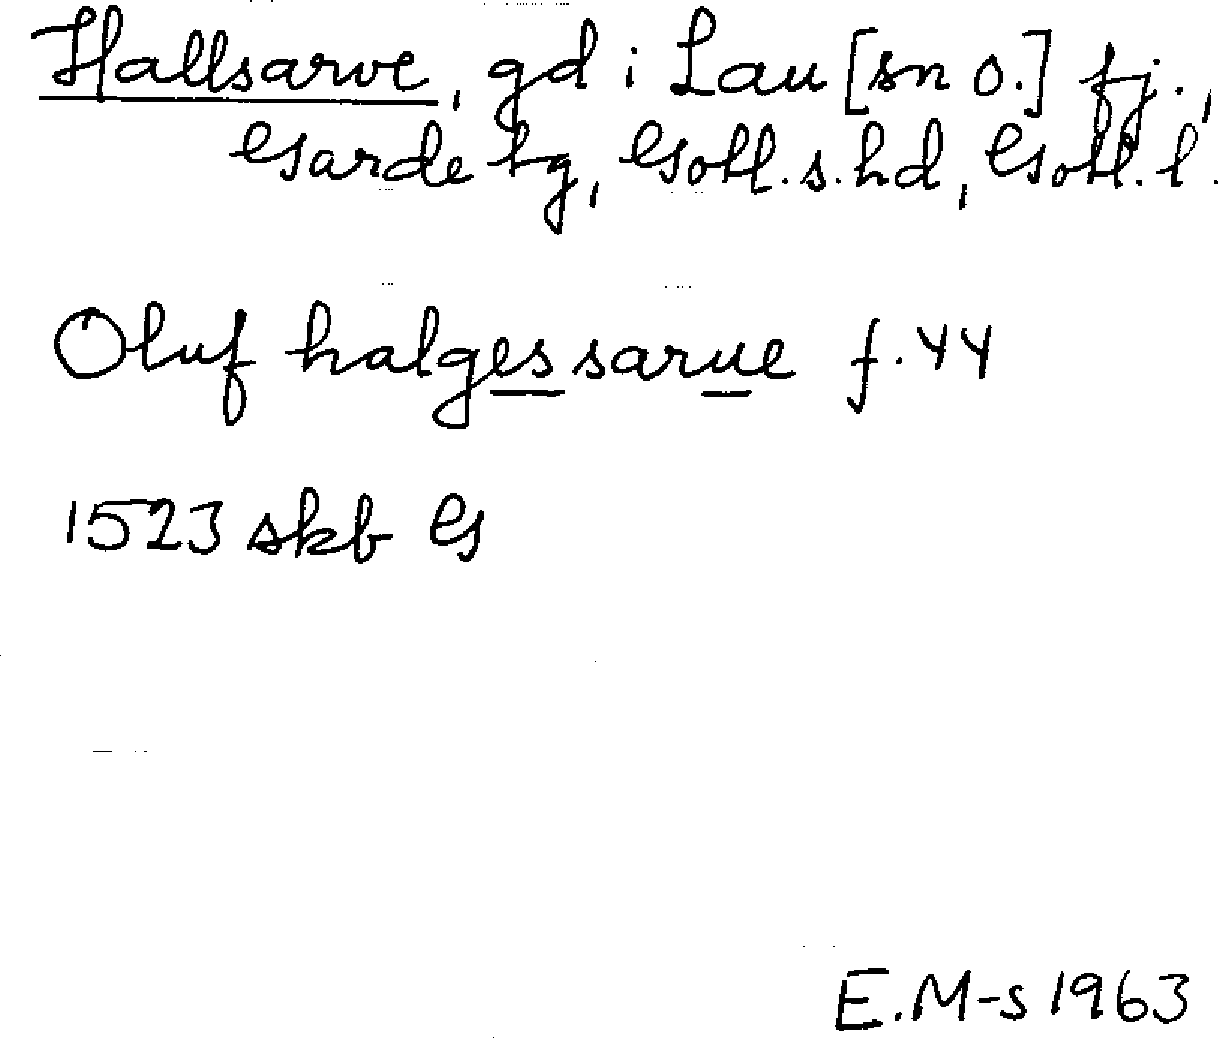 Hallsarve, gd i Lau [sn o.] fj.,
Garde tg, Gotl. s. hd, Gotl. l.
Oluf halgessarue f. 44
1523 skb G
E. M-s 1963